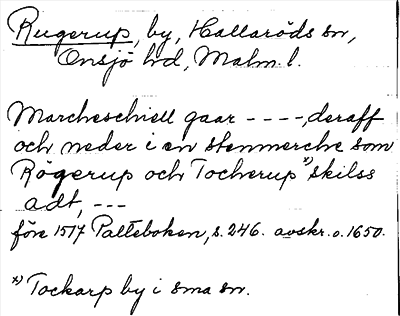 Rugerup, by, Hallaröds sn,
Onsjö hd, Malm. l.
Marcheschiell gaar - - - -, deraff
och neder i en stenmerche som
Rögerup och Tocherup *) skilss
adt, - - -
före 1517 Palteboken, s. 246. avskr. o. 1650.
*) Tockarp by i sma sn.